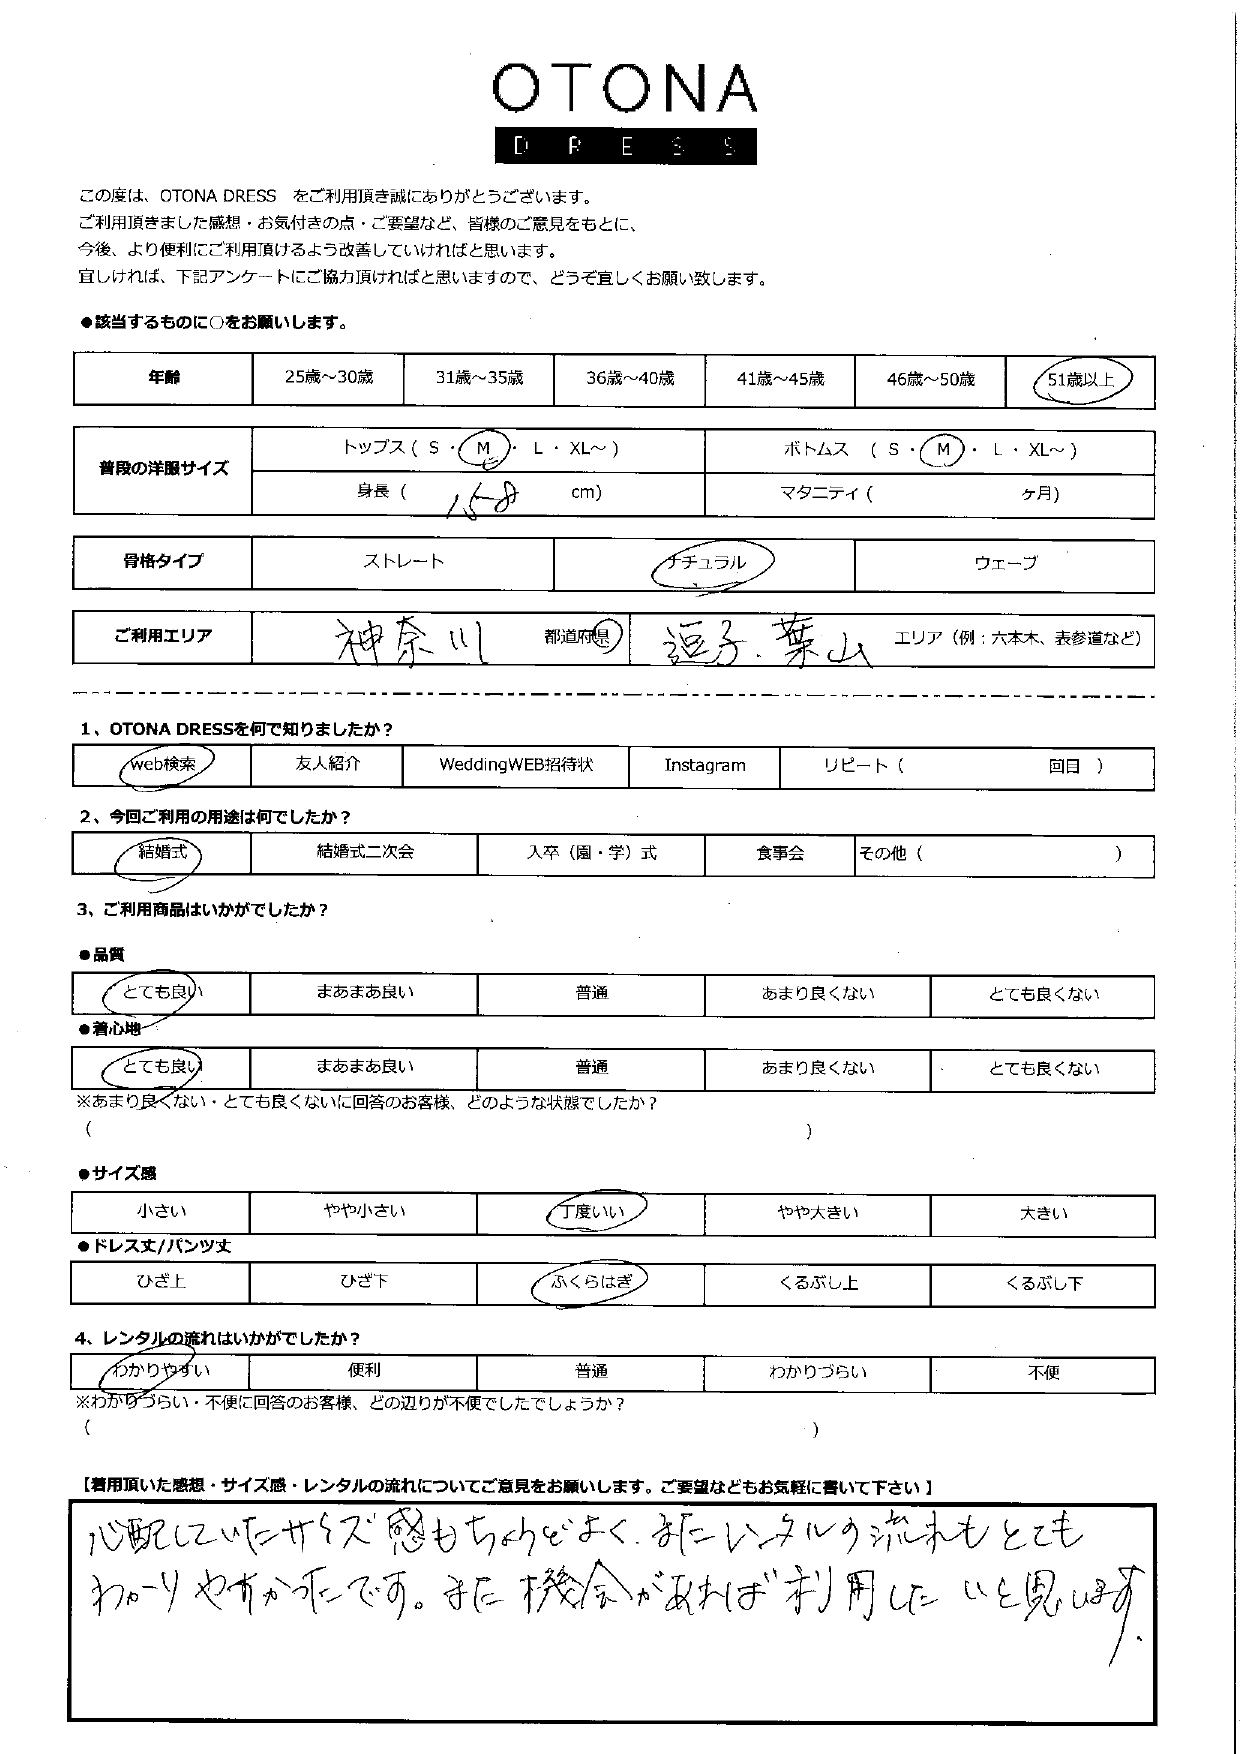 OTONA
DRESS
この度は、OTONA DRESS をご利用頂き誠にありがとうございます。
ご利用頂きました感想・お気付きの点・ご要望など、皆様のご意見をもとに、
今後、より便利にご利用頂けるよう改善していければと思います。
宜しければ、下記アンケートにご協力頂ければと思いますので、どうぞ宜しくお願い致します。
●該当するものに○をお願いします。
年齢 25歳～30歳 31歳～35歳 36歳～40歳 41歳～45歳 46歳～50歳 51歳以上
普段の洋服サイズ トップス ( S ・ M ・ L ・ XL～ ) ボトムス ( S ・ M ・ L ・ XL～ )
身長 ( 158 cm) マタニティ ( ヶ月)
骨格タイプ ストレート ナチュラル ウェーブ
ご利用エリア 神奈川 都道府県 逗子.葉山 エリア（例：六本木、表参道など）
1、OTONA DRESSを何で知りましたか？
web検索 友人紹介 WeddingWEB招待状 Instagram リピート ( 回目 )
2、今回ご利用の用途は何でしたか？
結婚式 結婚式二次会 入卒（園・学）式 食事会 その他 ( )
3、ご利用商品はいかがでしたか？
●品質
とても良い まあまあ良い 普通 あまり良くない とても良くない
●着心地
とても良い まあまあ良い 普通 あまり良くない とても良くない
※あまり良くない・とても良くないに回答のお客様、どのような状態でしたか？
( )
●サイズ感
小さい やや小さい 丁度いい やや大きい 大きい
●ドレス丈/パンツ丈
ひざ上 ひざ下 ふくらはぎ くるぶし上 くるぶし下
4、レンタルの流れはいかがでしたか？
わかりやすい 便利 普通 わかりづらい 不便
※わかりづらい・不便に回答のお客様、どの辺りが不便でしたでしょうか？
( )
【着用頂いた感想・サイズ感・レンタルの流れについてご意見をお願いします。ご要望などもお気軽に書いて下さい 】
心配していたサイズ感もちょうどよく.またレンタルの流れもとても
わかりやすかったです。また機会があれば利用したいと思います.